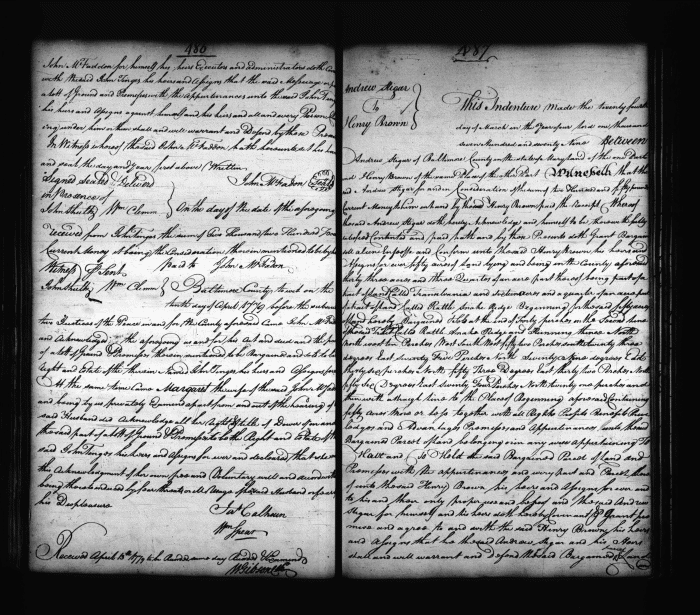 486
John McFaddon for himself his heirs Executors and administrators doth
with the said John Tinges his heirs and Assigns that the said Messuage
a lott of Ground and Premises with the Appurtenances unto the said John Tinges
his heirs and Assigns against himself and his heirs and all and every Person
him or them shall and will warrant and Defend by these
In Witness whereof the said John McFaddon hath hereunto set his hand
and year first above Written
Signed Sealed & Delivered John McFadon Seal
in Presence of
John Shultz Wm Clemm On the day of the date of the aforegoing
received from John Tinges the sum of two Thousand two Hundred
Current Money it being the Consideration therein mentioned to be by
Witness
John Shultz Wm Clemm John McFadon
Baltimore County to wit on the
tenth day of April 1779 before the
two Justices of the Peace in and for the County aforesaid Came John
and Acknowledged the aforegoing as and for his Act and deed and the
of a lott of Ground & Premises therein mentioned to be Bargained and
Right and Estate of the therein Named John Tinges his heirs and Assigns for
At the same time Came Margaret the wife of the said John
and being by us privately Examined apart from and out of the hearing of
said Husband did Acknowledge all her Right & title of Dower of in and
the said part of a lott of Ground & Premises to be the Right and Estate of the
said John Tinges his heirs and Assigns for ever and declared that she
the Acknowledgment of her own free and Voluntary will and
being thereto induced by fear threats or ill usage of her said Husband or fear of
his Displeasure
Jas Calhoun
Wm Spear
Received April 13th 1779 to be Recorded same day Recorded & Examined
Wm Gibson Clk
487
Andrew Stigar
to
Henry Brown
This Indenture Made the twenty fourth
day of March in the Year of our Lord one thousand
seven Hundred and seventy Nine Between
Andrew Stigar of Baltimore County in the State of Maryland of the one Part
and Henry Brown of the same Place of the other Part Witnesseth that the
said Andrew Stigar for and in Consideration of the sum of two Hundred and fifty pounds
Current Money to him in hand by the said Henry Brown paid the Receipt Whereof
the said Andrew Stigar doth hereby Acknowledge and himself to be therewith fully
satisfied Contented and paid hath and by these Presents doth Grant Bargain
sell alien Enfeoffe and Confirm unto the said Henry Brown his heirs and
Assigns for ever fifty acres of Land lying and being in the County aforesaid
thirty three acres and three Quarters of an acre part thereof being part of a
tract of Land Called Transilvania and Sixteen acres and a quarter of an acre part
of tract of Land Called Rattle Snake Ridge Beginning for the said fifty acres
of Land hereby Bargained & Sold at the end of Forty perches in the
of Land Called Rattle Snake Ridge and Running thence North
North west ten Perches West South West fifty two Perches south twenty three
degrees East seventy Perches North Seventy nine degrees East
thirty six perches North fifty Three Degrees East thirty two Perches North
fifty six Degrees East twenty Perches North twenty one perches and
then with a straight line to the Place of Beginning aforesaid Containing
fifty acres More or less together with all Rights Profits Benefits Priv
iledges and Advantages Premises and Appurtenances unto the said
Bargained Parcel of Land belonging or in any wise appertaining To
Have and to Hold the said Bargained Parcel of Land and
Premises with the appurtenances and every part and Parcel there
of unto the said Henry Brown his heirs and Assigns for ever and
to his and their only proper use and behoof and the said Andrew
Stigar for himself and his heirs doth hereby Covenant & Grant pro
mise and agree to and with the said Henry Brown his heirs
and Assigns that he the said Andrew Stigar and his Heirs
shall and will warrant and Defend the said Bargained Land